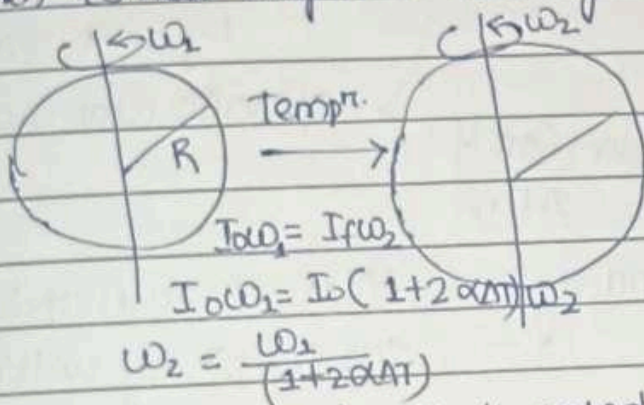 ω₁
ω₂
Tempr.
R
I₀ω₁ = I_fω₂
I₀ω₁ = I₀(1+2αΔT)ω₂
ω₂ = ω₁/(1+2αΔT)